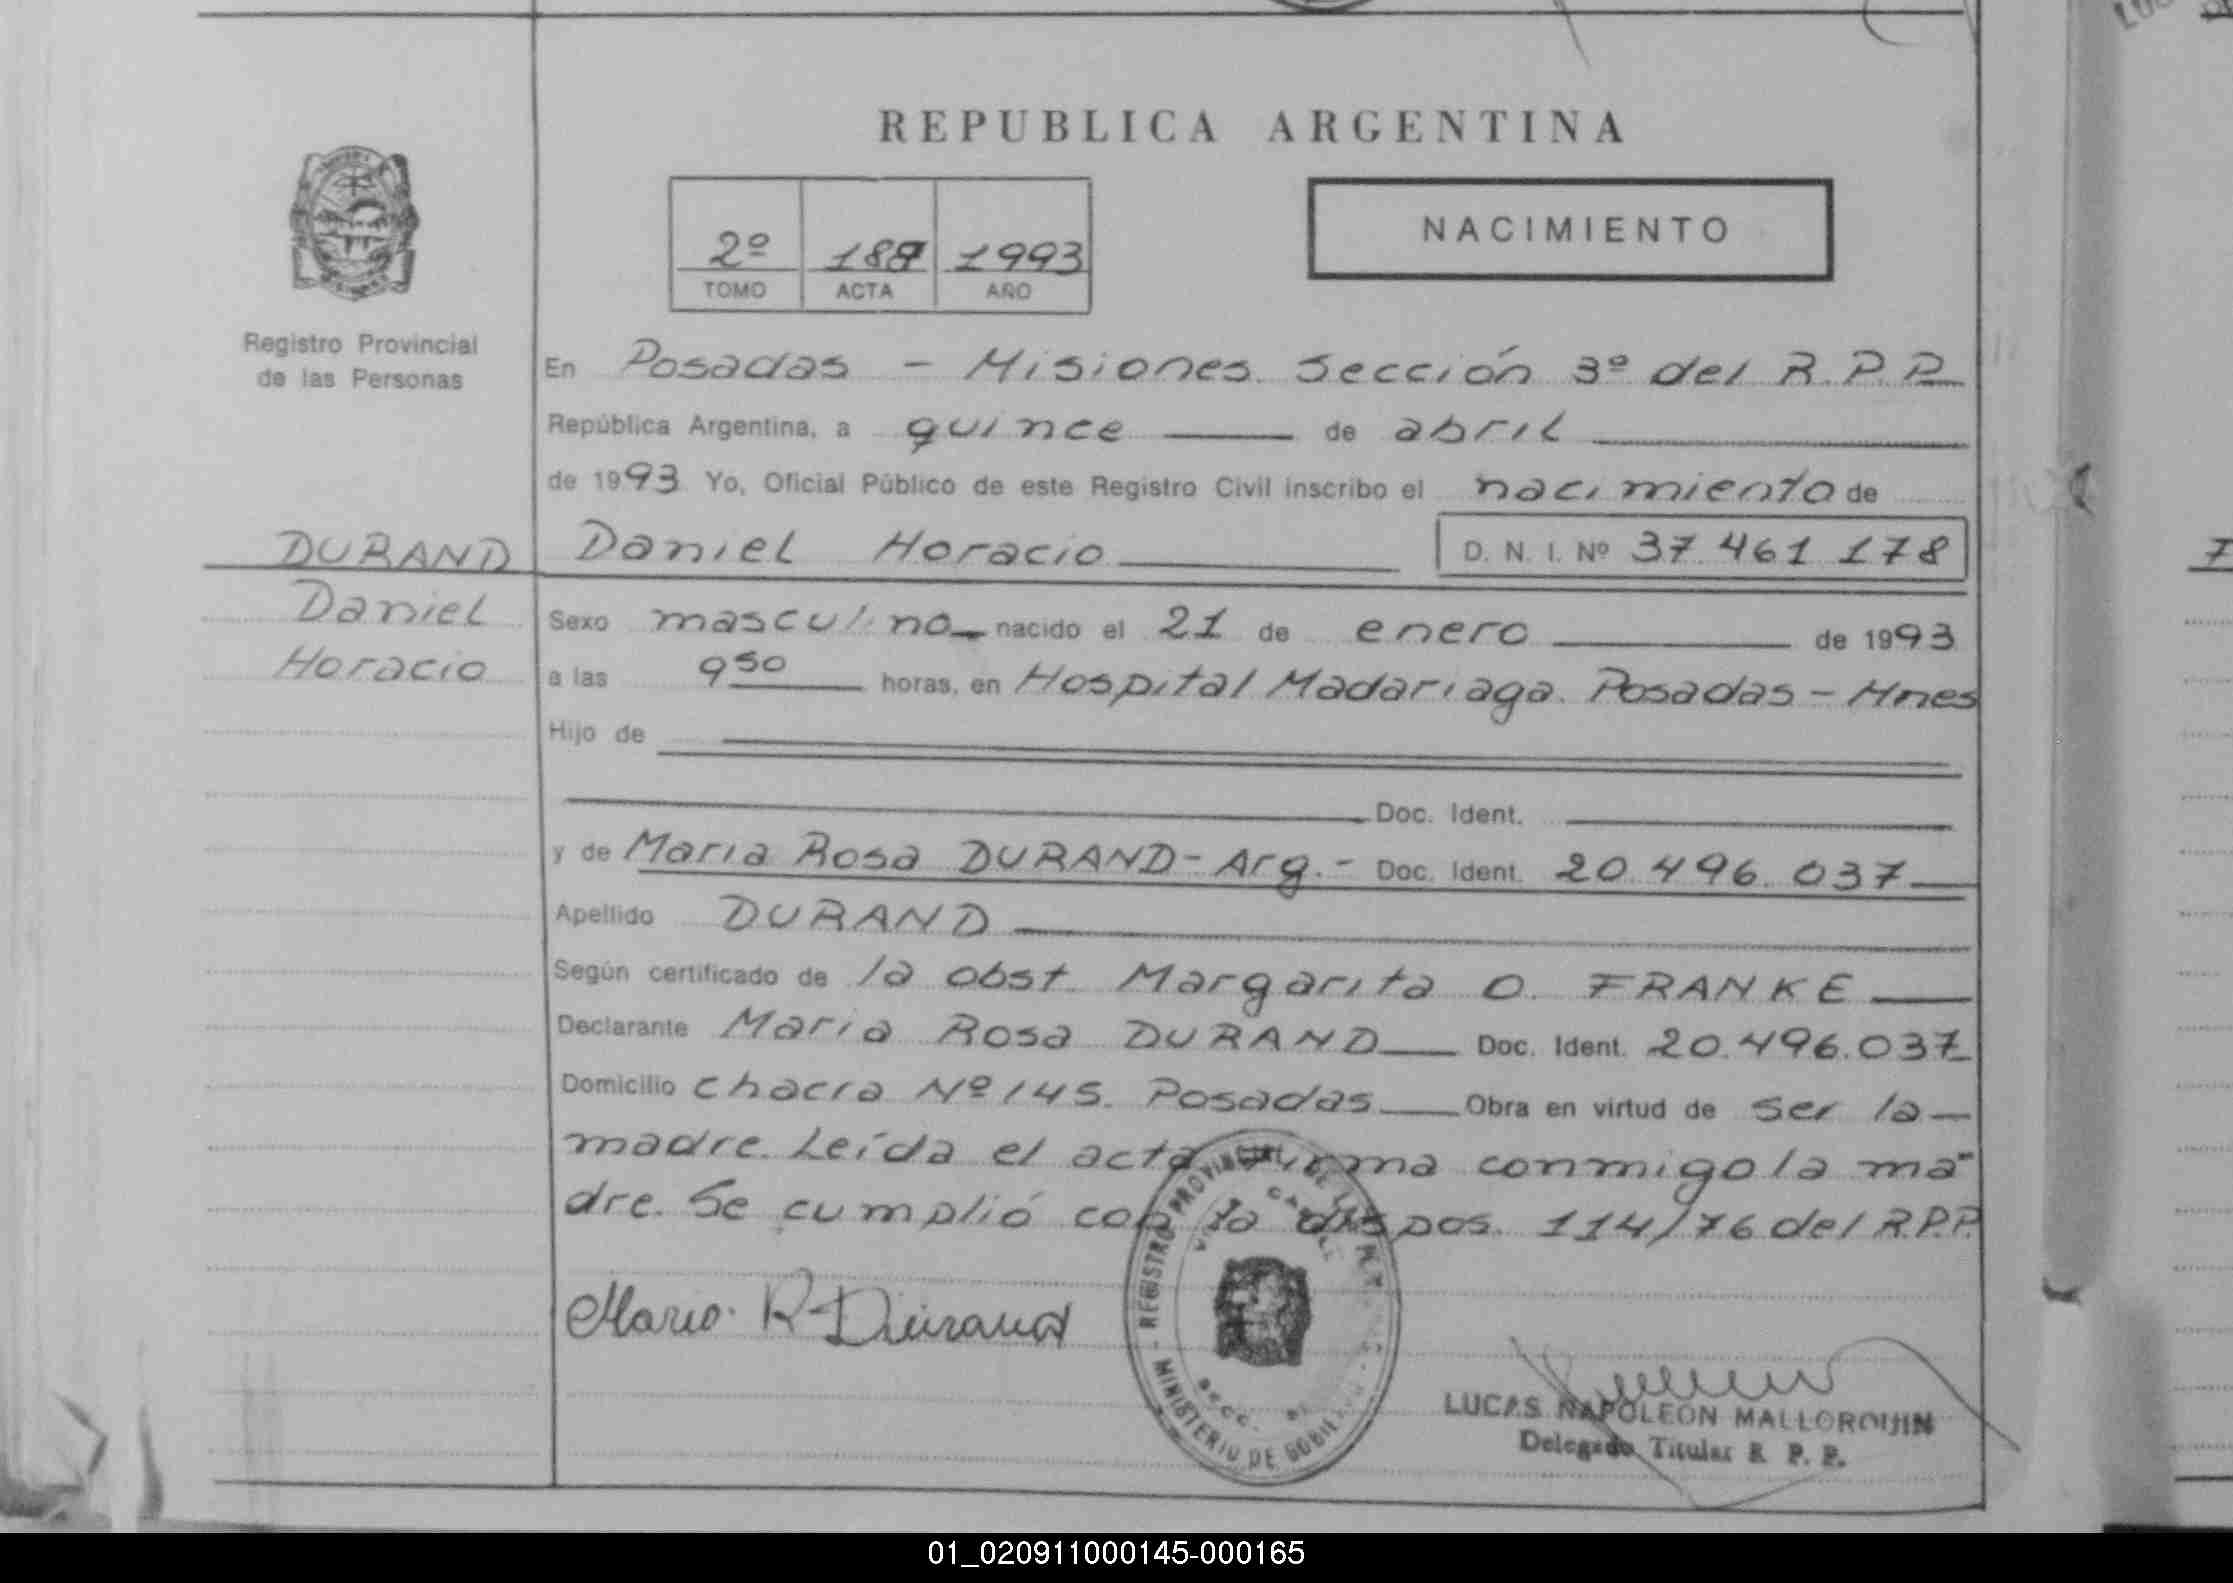 REPUBLICA ARGENTINA
2º 1993
TOMO ACTA AÑO
NACIMIENTO
Registro Provincial
de las Personas
En Posadas - Misiones. Sección 3º del R.P.P.
República Argentina, a quince de abril
de 1993 Yo, Oficial Público de este Registro Civil inscribo el nacimiento de
DURAND
Daniel
Horacio
Daniel Horacio D. N. I. Nº 37.461.178
Sexo masculino nacido el 21 de enero de 1993
a las 9 50 horas, en Hospital Madariaga. Posadas - Mnes
Hijo de
Doc. Ident.
y de Maria Rosa DURAND - Arg. - Doc. Ident. 20.496.037
Apellido DURAND
Según certificado de la obst. Margarita O. FRANKE
Declarante Maria Rosa DURAND Doc. Ident. 20.496.037
Domicilio chacra Nº 145. Posadas Obra en virtud de ser la
madre. Leída el acta firma conmigo la ma-
dre. Se cumplió con la dispos. 114/76 del R.P.P.
Maria R Durand
REGISTRO PROVINCIAL DE
MINISTERIO DE GOBIERNO
SECC.
LUCAS NAPOLEON MALLORQUIN
Delegado Titular R. P. P.
01_020911000145-000165